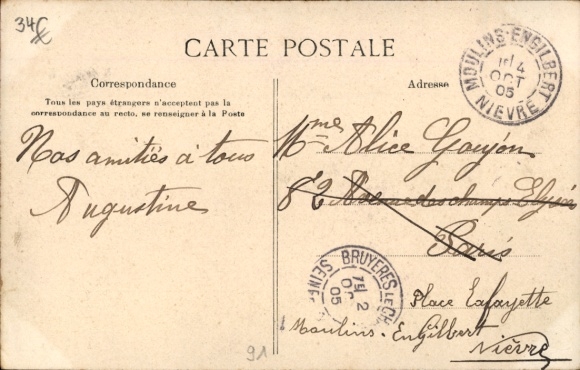 34€
CARTE POSTALE
Correspondance
Tous les pays étrangers n'acceptent pas la
correspondance au recto, se renseigner à la Poste
Nos amitiés à tous
Augustine
Adresse
Mme Alice Goujon
82 Avenue des champs Elysées
Paris
Place Lafayette
à Moulins-Engilbert
Nièvre
MOULINS-ENGILBERT
4
OCT
05
NIEVRE
BRUYERES-LE-CH
2
OC
05
SEINE
91